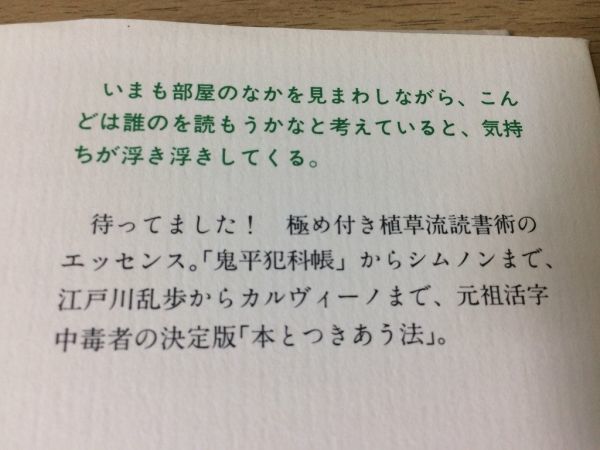 いまも部屋のなかを見まわしながら、こん
どは誰のを読もうかなと考えていると、気持
ちが浮き浮きしてくる。
待ってました！　極め付き植草流読書術の
エッセンス。「鬼平犯科帳」からシムノンまで、
江戸川乱歩からカルヴィーノまで、元祖活字
中毒者の決定版「本とつきあう法」。